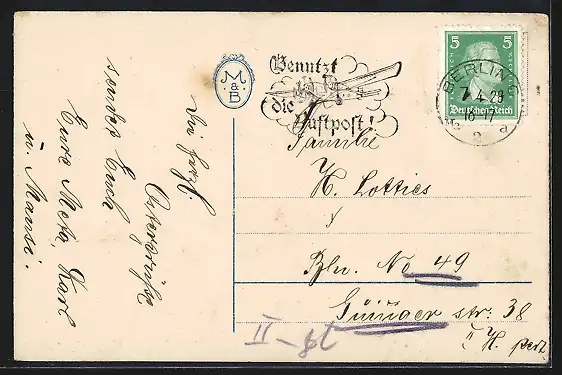 Benutzt
die
Luftpost!
M
&
B
5 5
Deutsches Reich
BERLIN
7.4.28
16-17
a
Die herzl.
Ostergrüße
sendet Euch
Eure Meta, Karl
u. Mausi.
Familie
H. Lotties
Bln. No 49
str. 38
II H. part